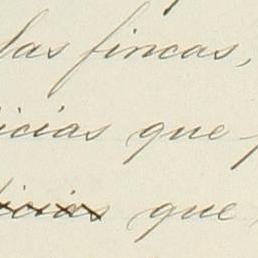 las fincas,
icias que
que